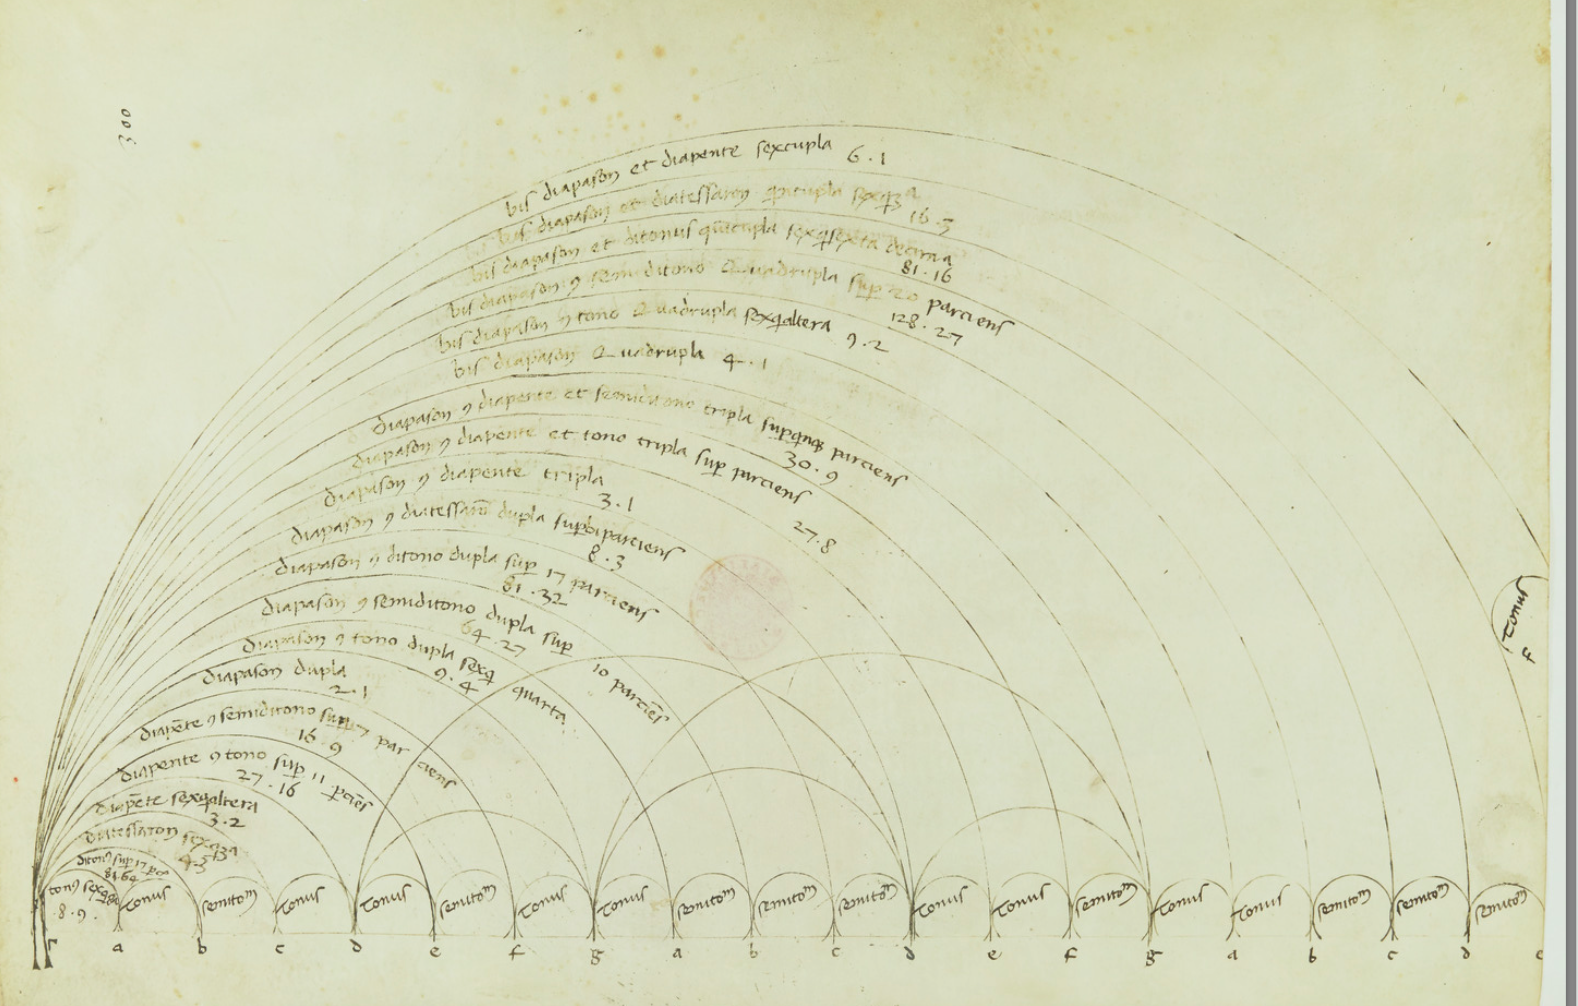 300
bis diapason et diapente sexcupla 6 · 1
bis diapason et diatessaron 16 · 3
bis diapason et ditonus quicupla sexqsexta decima 81 · 16
bis diapason 9 semiditono Quadrupla sup 20 parciens 128 · 27
bis diapason 9 tono Quadrupla sexqaltera 9 · 2
bis diapason Quadrupla 4 · 1
diapason 9 diapente et semiditono tripla parciens 30 · 9
diapason 9 diapente et tono tripla sup parciens 27 · 8
diapason 9 diapente tripla 3 · 1
diapason 9 diatessarō dupla supbiparciens 8 · 3
diapason 9 ditono dupla sup 17 parciens 81 · 32
diapason 9 semiditono dupla sup 10 parciēs 64 · 27
diapason 9 tono dupla sexq quarta 9 · 4
diapason dupla 2 · 1
diapēte 9 semiditono sup 7 parciens 16 · 9
diapente 9 tono sup 11 pciēs 27 · 16
diapēte sexqaltera 3 · 2
diatessaron 4 · 3
diton9 sup 17 81 · 64
ton9 8 · 9
tonus semitom tonus tonus semitom tonus tonus semitom semitom semitom tonus tonus semitom tonus tonus semitom semitom semitom
tonus
F
Γ a b c d e f g a b c d e f g a b c d e